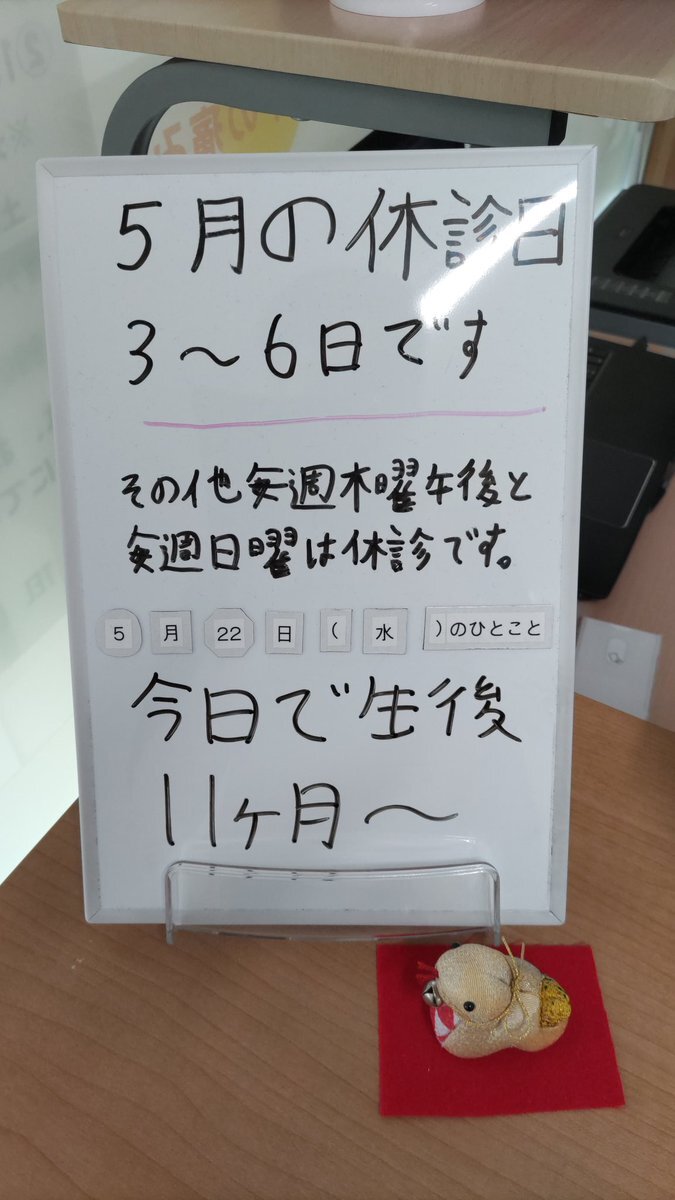 5月の休診日
3〜6日です
その他毎週木曜午後と
毎週日曜は休診です。
5月22日(水)のひとこと
今日で生後
11ヶ月〜
の痛み